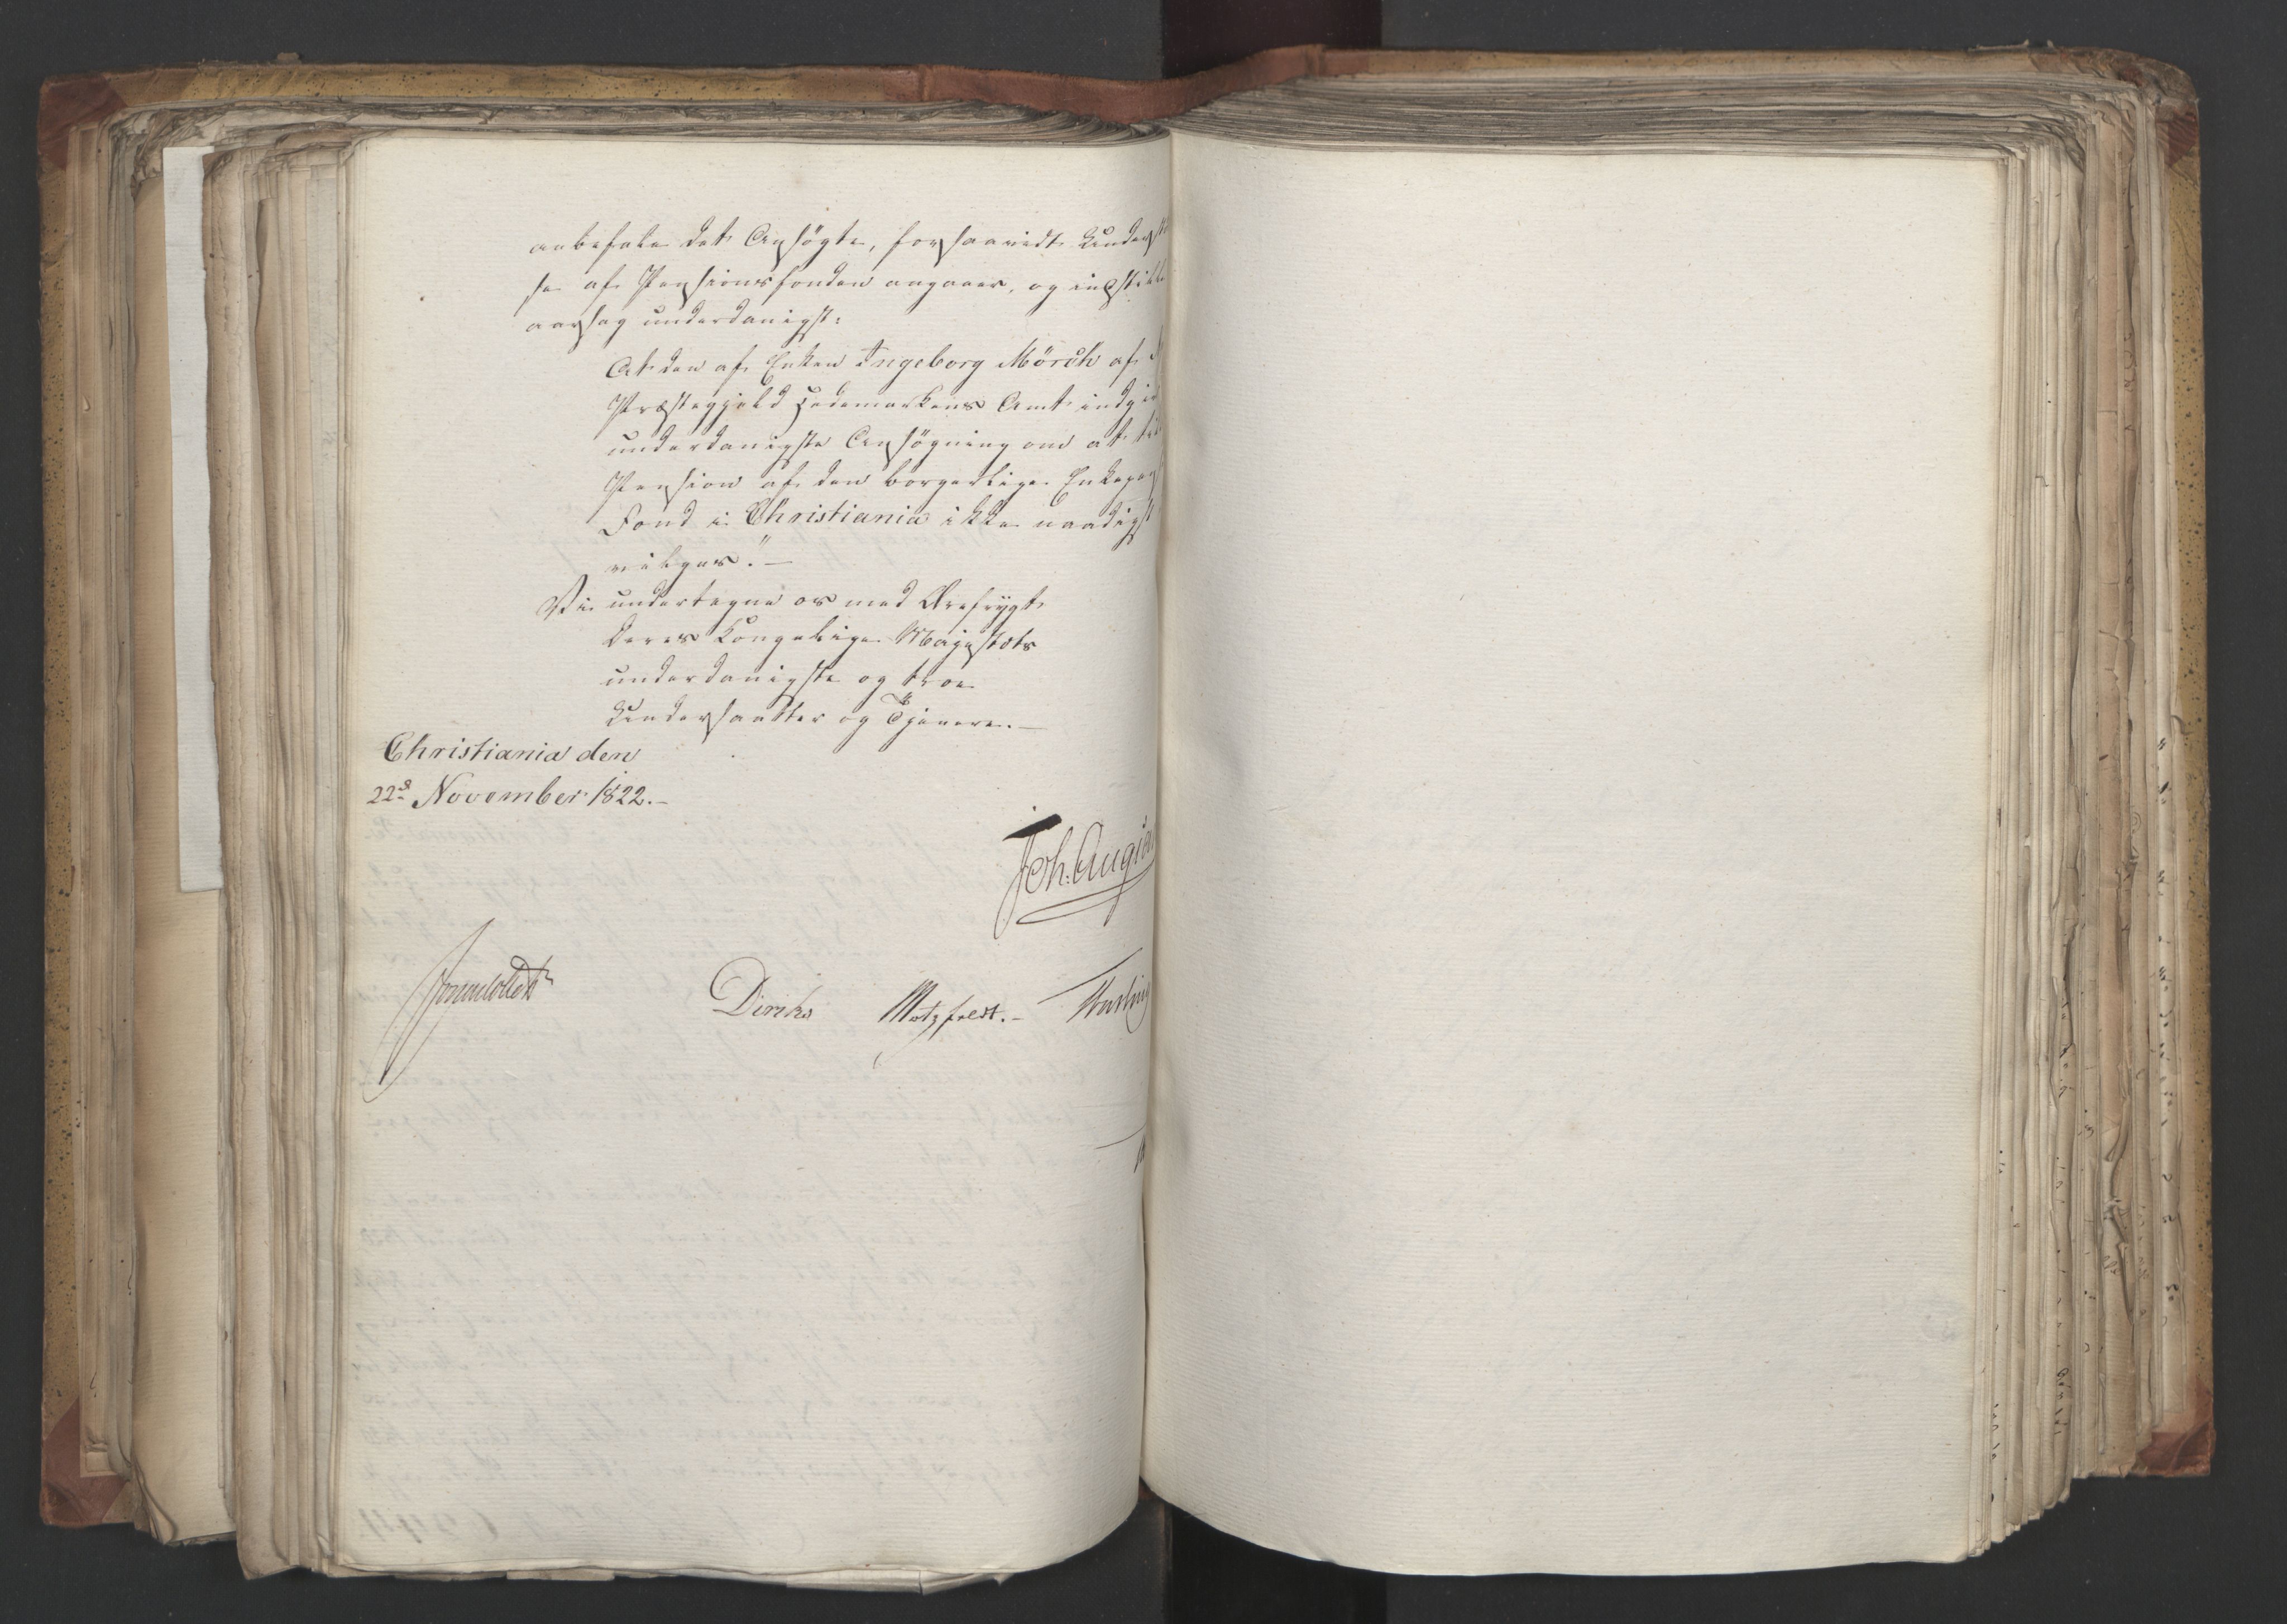 anbefale det Ansögte, forsaavidt Underst
se af Pensionsfonden angaaer, og indstille
aarsag underdanigst:
At den af Enken Ingeborg Mörch af
Præstegjeld Hedemarkens Amt indgiv
underdanigste Ansögning om at
Pension af den borgerlige Enkepens
Fond i Christiania ikke naadigst
vilges." —
Vi undertegne os med Ærefrygt
Deres Kongelige Majestæts
underdanigste og troe
Undersaatter og Tjenere. —
Christiania den
22d November 1822. —
Joh. Aug.
Jonas Collett
Diriks Motzfeldt. —